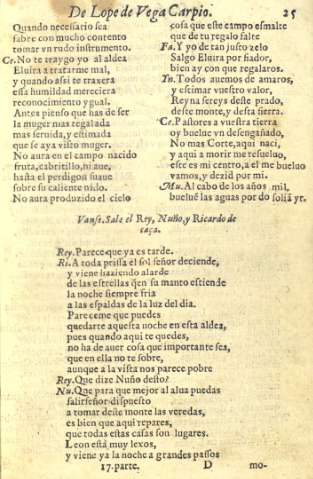 De Lope de Vega Carpio. 25
Quando necessario sea
sabre con mucho contento
tomar vn rudo instrumento.
Cr. No te traygo yo al aldea
Eluira a tratarme mal,
y quando assi te traxera
essa humildad mereciera
reconocimiento ygual.
Antes pienso que has de ser
la muger mas regalada
mas seruida, y estimada
que se aya visto muger.
No aura en el campo nacido
fruta, cabritillo, ni aue,
hasta el perdigon suaue
sobre su caliente nido.
No aura produzido el cielo
cosa que este campo esmalte
que de tu regalo falte
Fa. Y yo de tan justo zelo
Salgo Eluira por fiador,
bien ay con que regalaros.
Yn. Todos auemos de amaros,
y estimar vuestro valor,
Reyna sereys deste prado,
deste monte, y desta sierra.
Cr. Pastores a vuestra tierra
oy buelue vn desengañado,
No mas Corte, aqui naci,
y aqui a morir me resueluo,
este es mi centro, a el me bueluo
vamos, y dezid por mi.
Mu. Al cabo de los años mil,
buelue las aguas por do solia yr.
Vanse. Sale el Rey, Nuño, y Ricardo de
caça.
Rey. Parece que ya es tarde.
Ri. A toda prissa el sol señor deciende,
y viene haziendo alarde
de las estrellas q̃ en su manto estiende
la noche siempre fria
a las espaldas de la luz del dia.
Pareceme que puedes
quedarte aquesta noche en esta aldea,
pues quando aqui te quedes,
no ha de auer cosa que importante sea,
que en ella no te sobre,
aunque a la vista nos parece pobre
Rey. Que dize Nuño desto?
Nu. Que para que mejor al alua puedas
salir señor dispuesto
a tomar deste monte las veredas,
es bien que aqui repares,
que todas estas casas son lugares.
Leon està muy lexos,
y viene ya la noche a grandes passos
17. parte. D mo-